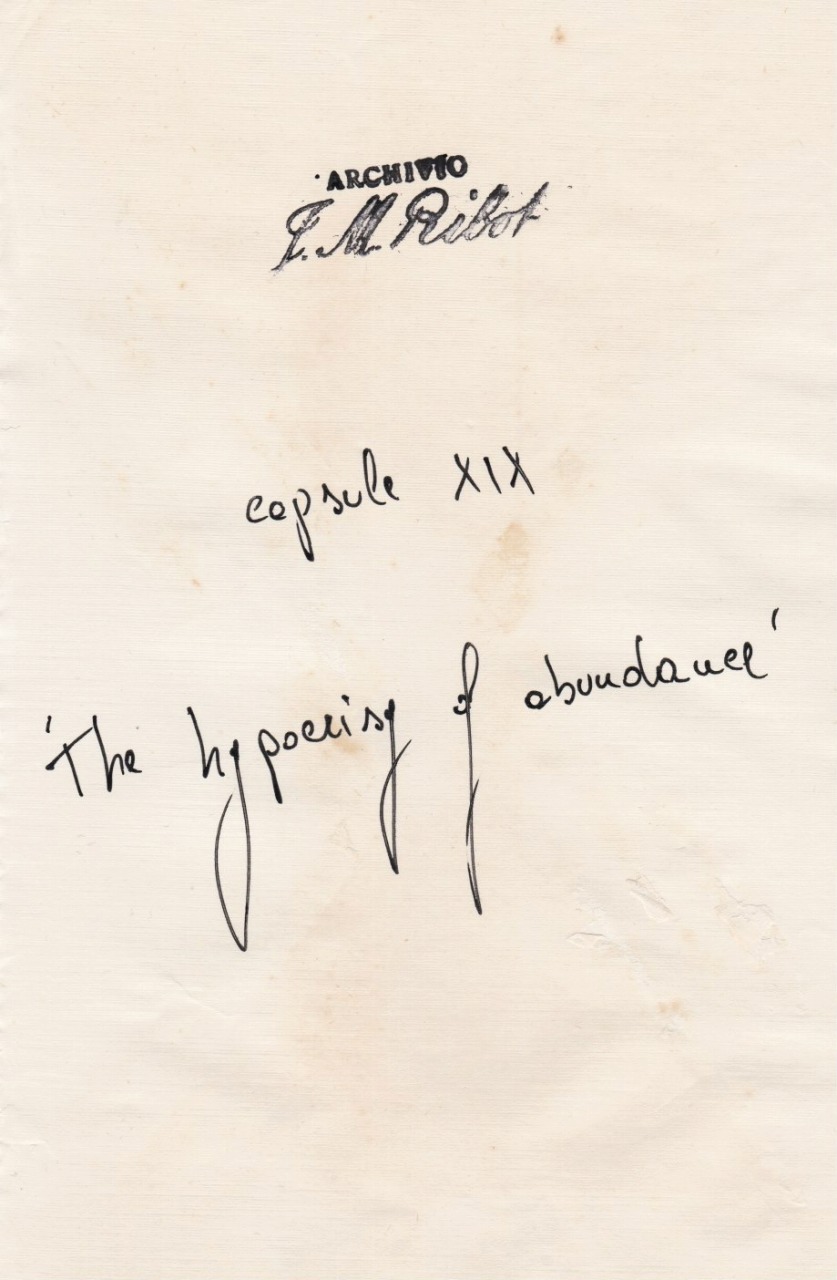 ARCHIVIO
F. M. Ribot
capsule XIX
'The hypocrisy of abundance'